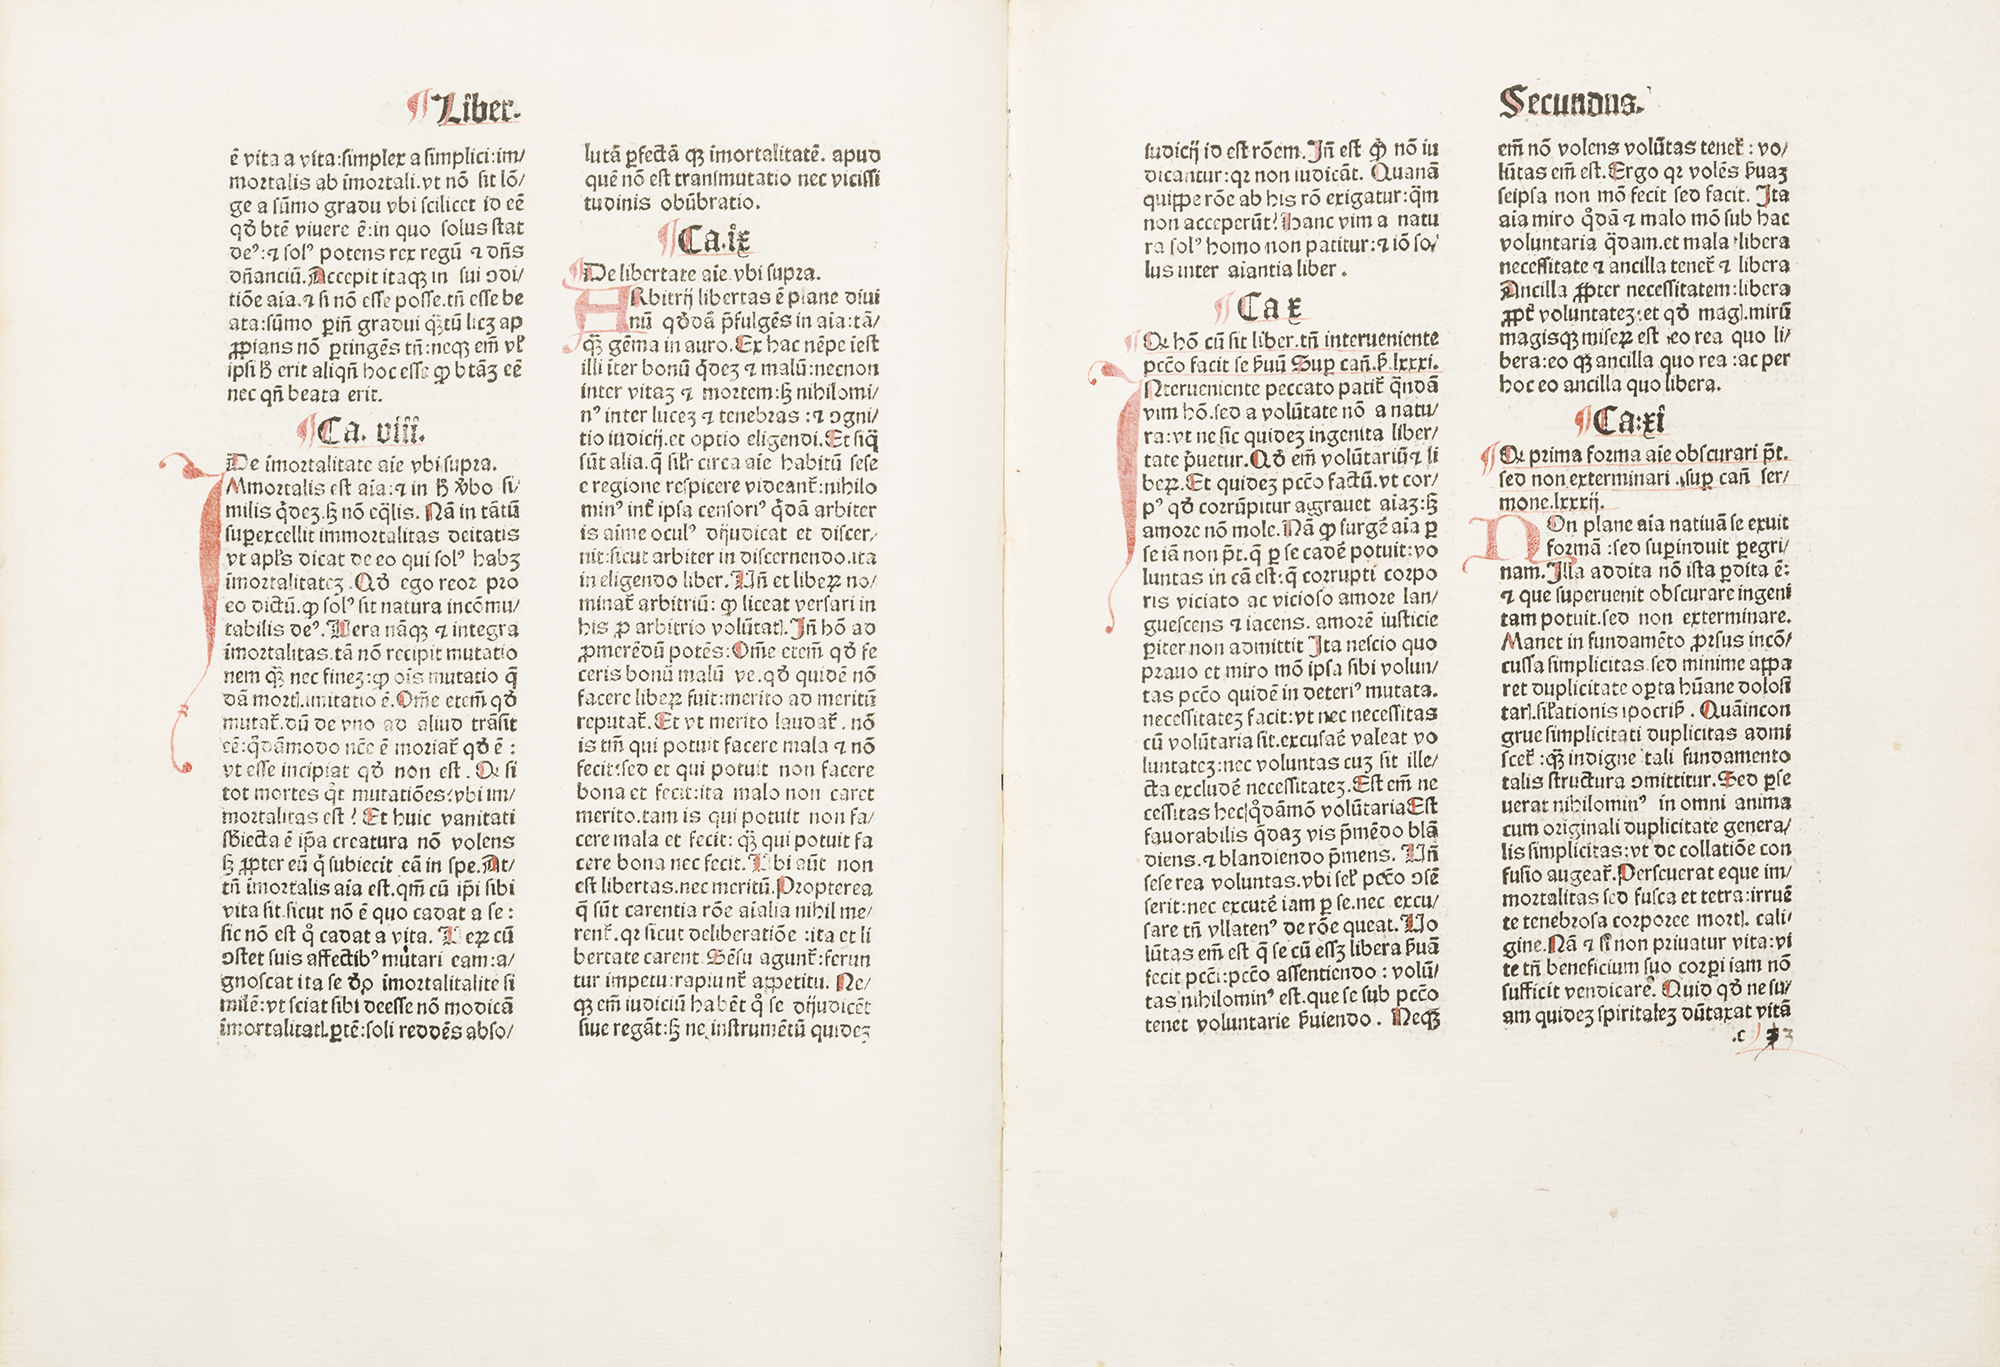 ¶ Liber.
ē vita a vita:simplex a simplici:im/
mortalis ab īmortali.vt nō sit lō/
ge a sūmo gradu vbi scilicet id eē
qđ btē viuere ē:in quo solus stat
deꝰ:⁊ solꝰ potens rex regū ⁊ dn̄s
dn̄anciū.Accepit itaqꝫ in sui ↄdi/
tiōe aīa.⁊ si nō esse posse.tn̄ esse be
ata:sūmo ꝑin̄ gradui qꝫtū licꝫ ap
ꝓpians nō ꝑtingēs tn̄:neqꝫ em̄ vl̄
ipsi ꝫ erit aliqn̄ hoc esse ꝙ btāꝫ eē
nec qn̄ beata erit.
¶ Ca. viii.
De īmortalitate aīe vbi supra.
IMmortalis est aīa:⁊ in ꝫ v̾bo si/
milis q̄dez.ꝫ nō eq̄lis. Nā in tātū
superexcellit immortalitas deitatis
vt apl̄s dicat de eo qui solꝰ habꝫ
īmortalitatez. Qđ ego reor pro
eo dictū.ꝙ solꝰ sit natura incōmu/
tabilis deꝰ. Vera nāqꝫ ⁊ integra
īmortalitas.tā nō recipit mutatio
nem qꝫ nec finez:ꝙ oīs mutatio q̄
dā mortꝭ.imitatio ē. Om̄e etem̄ qđ
mutat̄.dū de vno ad aliud trāsit
eē:q̊dāmodo nc̄e ē moriat̄ qđ ē :
vt esse incipiat qđ non est. Qꝛ si
tot mortes q̄t mutatiōes:vbi im/
mortalitas est? Et huic vanitati
sb̄iecta ē ip̄a creatura nō volens
ꝫ ꝓpter eū q̄ subiecit eā in spe. At/
tn̄ īmortalis aīa est.qm̄ cū ip̄i sibi
vita sit.sicut nō ē quo cadat a se :
sic nō est q̊ cadat a vita. Veꝝ cū
ↄstet suis affectibꝰ mūtari eam:a/
gnoscat ita se đo īmortalitate si
milē:vt sciat sibi deesse nō modicā
īmortalitatꝭ.ꝑtē:soli reddēs abso/
lutā ꝑfectā qꝫ īmortalitatē. apud
quē nō est transmutatio nec vicissi
tudinis obūbratio.
¶ Ca.ix
¶ De libertate aīe vbi supra.
ARbitrij libertas ē plane diui
nū qđdā p̄fulgēs in aīa:tā/
qꝫ gēma in auro. Ex hac nēpe īest
illi īter bonū q̄dez ⁊ malū:necnon
inter vitaz ⁊ mortem:ꝫ nihilomi/
nꝰ inter lucez ⁊ tenebras :⁊ ↄgni/
tio iudicij.et optio eligendi.Et siq̄
sūt alia.q̄ sil̄r circa aīe habitū sese
e regione respicere videant̄:nihilo
minꝰ int̄ ipsa censoriꝰ q̄dā arbiter
is aīme oculꝰ dijudicat et discer/
nit:sicut arbiter in discernendo.ita
in eligendo liber. Vn̄ et libeꝝ no/
minat̄ arbitriū: ꝙ liceat versari in
his ꝓ arbitrio volūtatꝭ. In̄ hō ad
ꝓmerēdū potēs:Om̄e etem̄ qđ fe
ceris bonū malū ve.qđ quidē nō
facere libeꝝ fuit:merito ad meritū
reputat̄.Et vt merito laudat̄. nō
is tm̄ qui potuit facere mala ⁊ nō
fecit:sed et qui potuit non facere
bona et fecit:ita malo non caret
merito.tam is qui potuit non fa/
cere mala et fecit: qꝫ qui potuit fa
cere bona nec fecit. Vbi aūt non
est libertas.nec meritū.Propterea
q̄ sūt carentia rōe aīalia nihil me/
rent̄.qꝛ sicut deliberatiōe :ita et li
bertate carent. Sēsu agunt̄:ferun
tur impetu:rapiunt̄ appetitu. Ne/
qꝫ em̄ iudiciū habēt q̊ se dijudicēt
siue regāt:ꝫ ne instrumētū quidez
Secundus.
iudicij id est rōem. In̄ est ꝙ nō iu
dicantur:qꝛ non iudicāt. Quanā
quippe rōe ab his rō exigatur:q̄m
non acceperūt? Hanc vim a natu
ra solꝰ homo non patitur:⁊ iō so/
lus inter aīantia liber .
¶ Ca x
¶ Qꝛ hō cū sit liber.tn̄ interueniente
pcc̄o facit se ẜuū Sup can̄.ẜ.lxxxi.
INterueniente peccato patit̄ q̄ndā
vim hō.sed a volūtate nō a natu/
ra:vt ne sic quidez ingenita liber/
tate p̄uetur.Qđ em̄ volūtariū ⁊ li
beꝝ.Et quidez pcc̄o factū.vt cor/
pꝰ qđ corrūpitur aggrauet aīaz:ꝫ
amore nō mole. Nā ꝙ surgē aīa ꝑ
se iā non pt̄.q̄ ꝑ se cadē potuit:vo
luntas in cā est:q̄ corrupti corpo
ris viciato ac vicioso amore lan/
guescens ⁊ iacens. amorē iusticie
ꝑiter non admittit Ita nescio quo
prauo et miro mō ipsa sibi volun/
tas pcc̄o quidē in deteriꝰ mutata.
necessitatez facit:vt nec necessitas
cū volūtaria sit.excusaē valeat vo
luntatez:nec voluntas cuz sit ille/
cta excludē necessitatez.Est em̄ ne
cessitas hec q̊dāmō volūtariaEst
fauorabilis q̄daz vis p̄mēdo blā
diens.⁊ blandiendo p̄mens. Vn̄
sese rea voluntas.vbi sel̄ pcc̄o ↄsē
serit:nec excutē iam ꝑ se.nec excu/
sare tn̄ vllatenꝰ de rōe queat. Vo
lūtas em̄ est q̄ se cū essꝫ libera ẜuā
fecit pcc̄i:pcc̄o assentiendo : volū/
tas nihilominꝰ est.que se sub pcc̄o
tenet voluntarie ẜuiendo . Neqꝫ
em̄ nō volens volūtas tenet̄ : vo/
lūtas em̄ est. Ergo qꝛ volēs ẜuaz
seipsa non mō fecit sed facit. Ita
aīa miro q̊dā ⁊ malo mō sub hac
voluntaria q̄dam.et mala libera
necessitate ⁊ ancilla tenet̄ ⁊ libera
Ancilla ꝓpter necessitatem:libera
ꝓpt̄ voluntatez:et qđ magꝭ.mirū
magisqꝫ miseꝝ est eo rea quo li/
bera:eo qꝫ ancilla quo rea :ac per
hoc eo ancilla quo libera.
¶ Ca:xi
¶ Qꝛ prima forma aīe obscurari pt̄.
sed non exterminari .sup can̄ ser/
mone.lxxxij.
NOn plane aīa natiuā se exuit
formā :sed supinduit ꝑegri/
nam.Illa addita nō ista ꝑdita ē:
⁊ que superuenit obscurare ingeni
tam potuit.sed non exterminare.
Manet in fundamēto ꝓrsus incō/
cussa simplicitas.sed minime appa
ret duplicitate oꝑta hūane dolosi
tatꝭ.sil̄ationis ipocriẜ . Quā incon
grue simplicitati duplicitas admi
scet̄ :qꝫ indigne tali fundamento
talis structura ↄmittitur. Sed ꝑse
uerat nihilominꝰ in omni anima
cum originali duplicitate genera/
lis simplicitas:vt de collatiōe con
fusio augeat̄.Perseuerat eque im/
mortalitas sed fusca et tetra:irruē
te tenebrosa corporee mortꝭ. cali/
gine.Nā ⁊ si non priuatur vita:vi
te tn̄ beneficium suo corꝑi iam nō
sufficit vendicare. Quid qđ ne su/
am quidez spiritalez dūtaxat vitā
.c 3